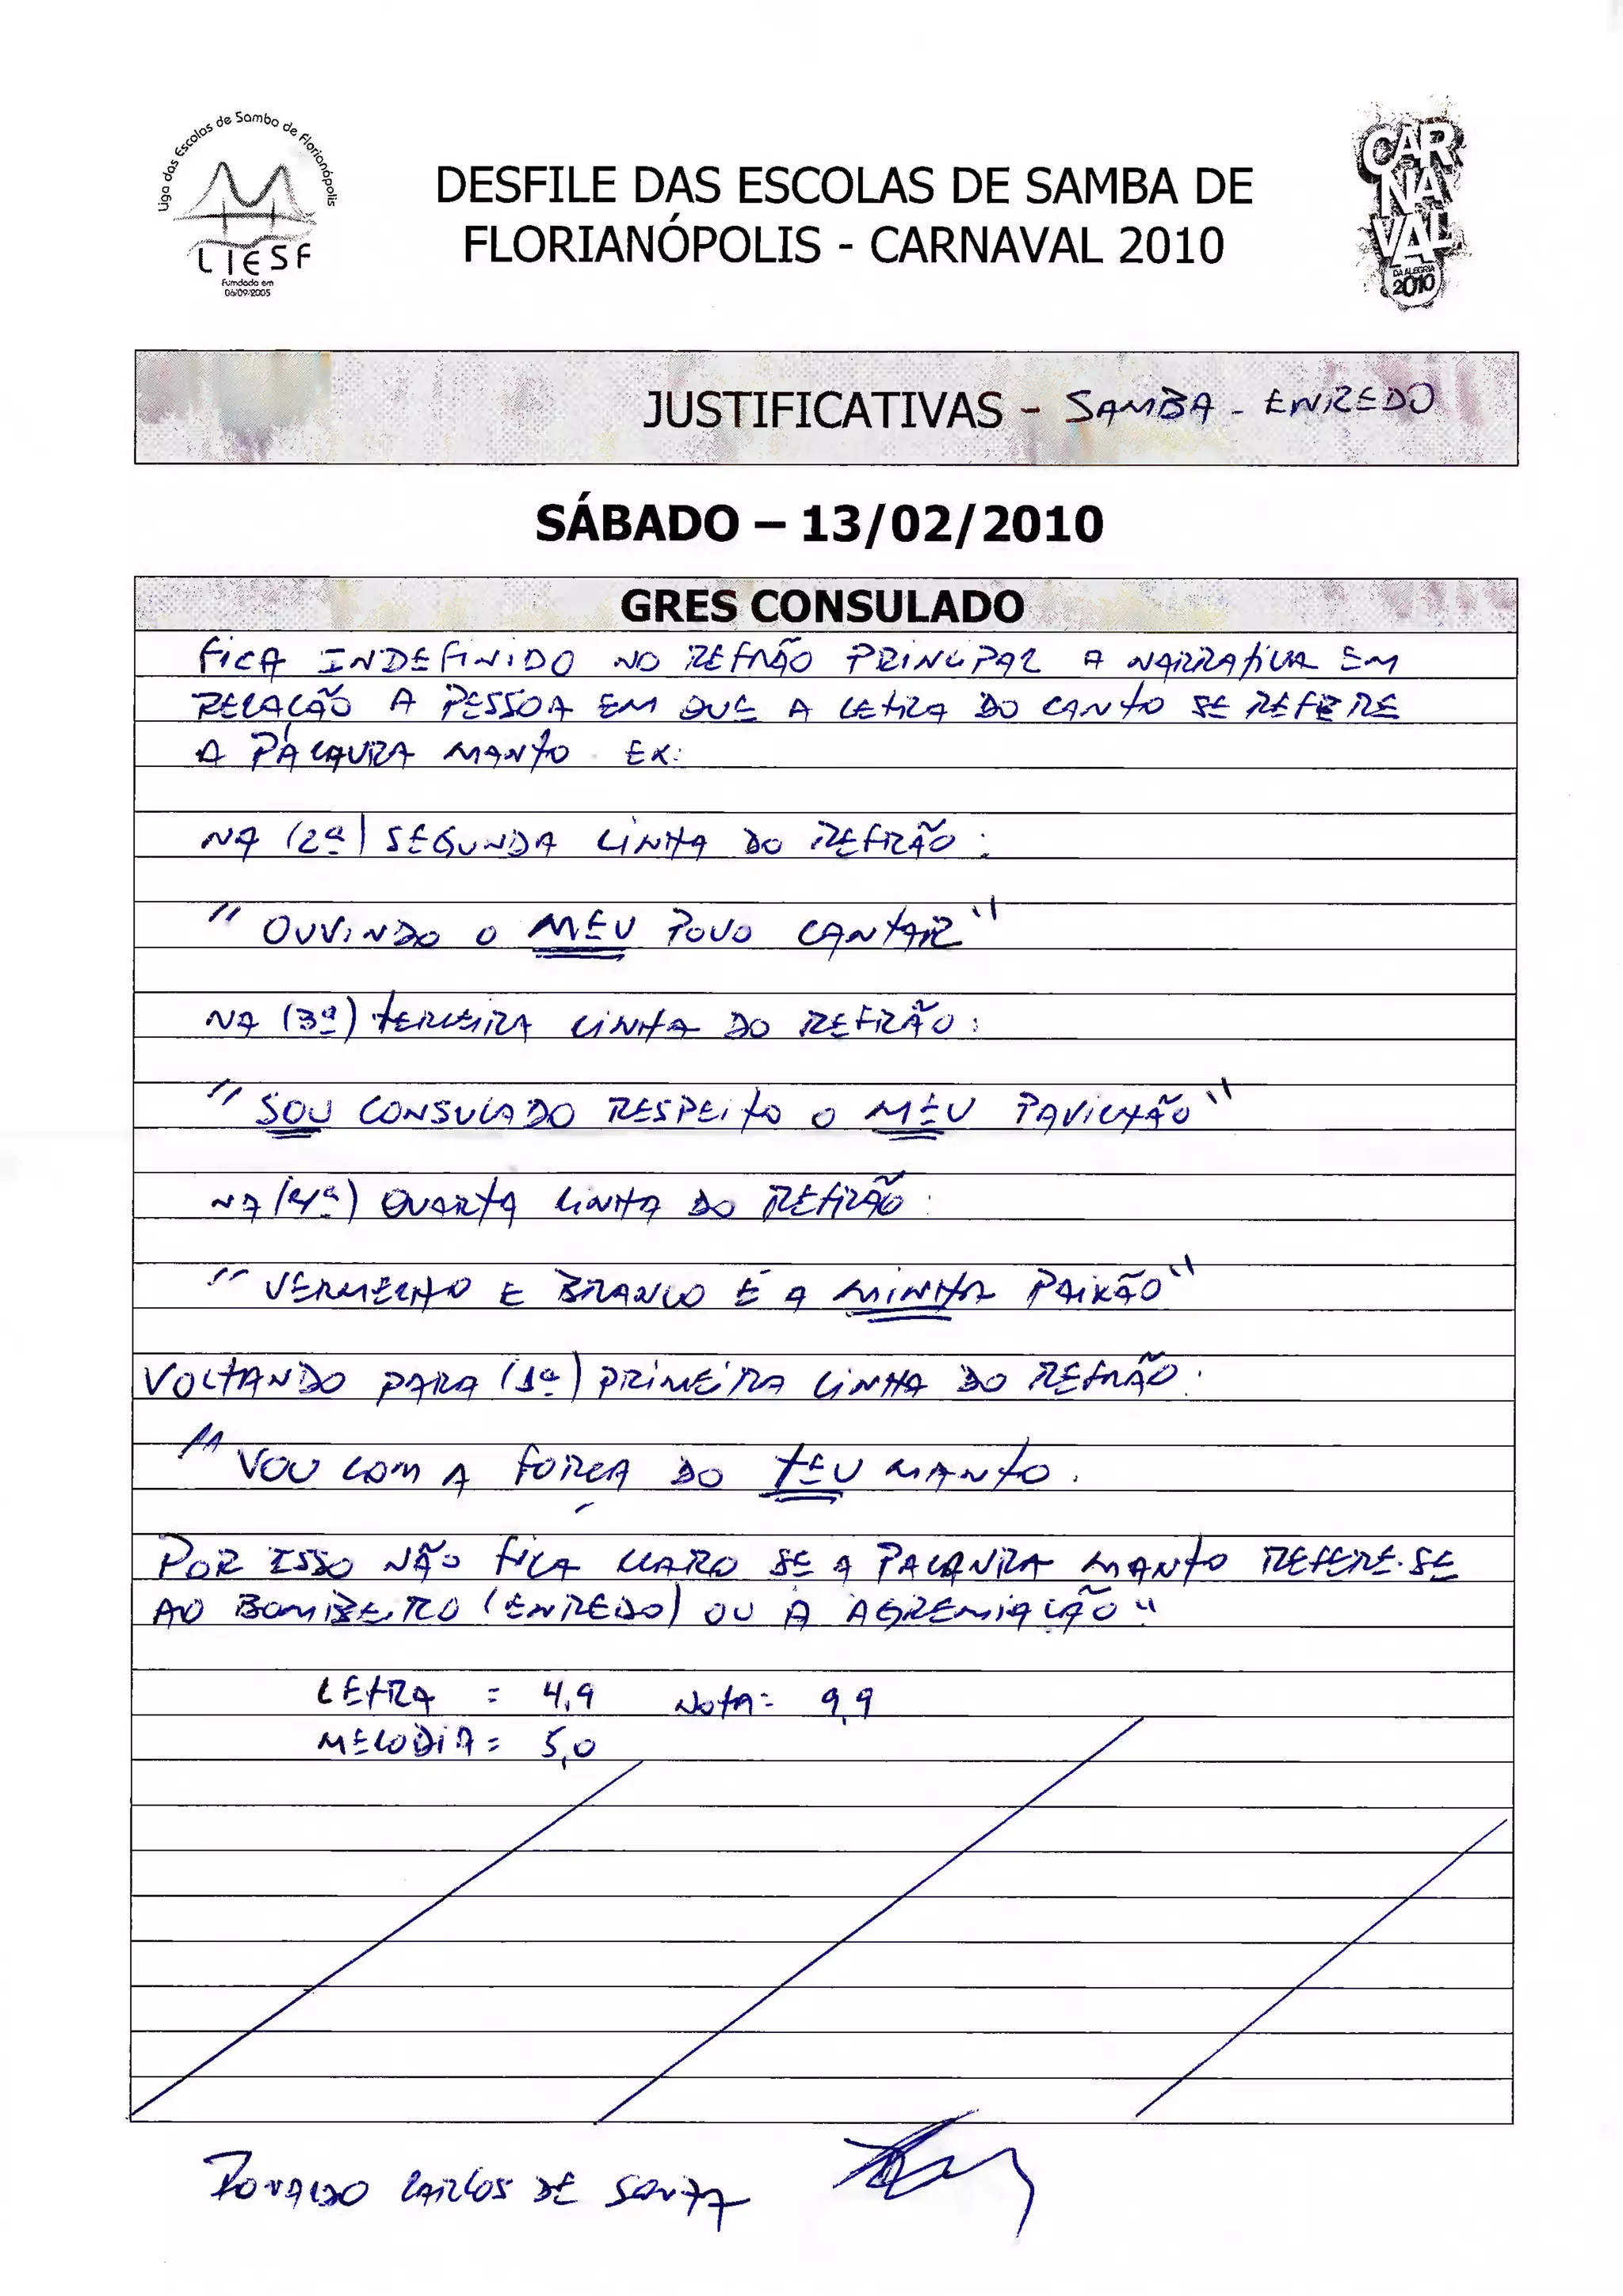 Liga das Escolas de Samba de Florianópolis
LIESF
Fundada em
06/09/2005
DESFILE DAS ESCOLAS DE SAMBA DE
FLORIANÓPOLIS - CARNAVAL 2010
CAR
NA
VAL
DA ALEGRIA
2010
JUSTIFICATIVAS - SAMBA - ENREDO
SÁBADO – 13/02/2010
GRES CONSULADO
FICA INDEFINIDO NO REFRÃO PRINCIPAL A NARRATIVA EM
RELAÇÃO A PESSOA EM QUE A LETRA DO CANTO SE REFERE
A PALAVRA MANTO. EX:
NA (2ª) SEGUNDA LINHA DO REFRÃO:
"OUVINDO O MEU POVO CANTAR"
NA (3ª) TERCEIRA LINHA DO REFRÃO:
"SOU CONSULADO RESPEITO O MEU PAVILHÃO"
NA (4ª) QUARTA LINHA DO REFRÃO:
"VERMELHO E BRANCO É A MINHA PAIXÃO"
VOLTANDO PARA (1ª) PRIMEIRA LINHA DO REFRÃO:
"VOU COM A FORÇA DO TEU MANTO.
POR ISSO NÃO FICA CLARO SE A PALAVRA MANTO REFERE-SE
AO BOMBEIRO (ENREDO) OU A AGREMIAÇÃO"
LETRA = 4,9 NOTA: 9,9
MELODIA = 5,0
CARLOS DE SOUZA